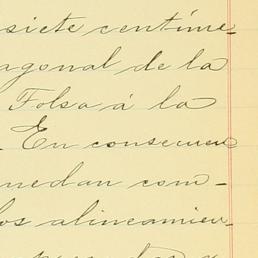 siete centíme-
agonal de la
Folsa á la
. En consecuen
uedan com-
los alineamien-